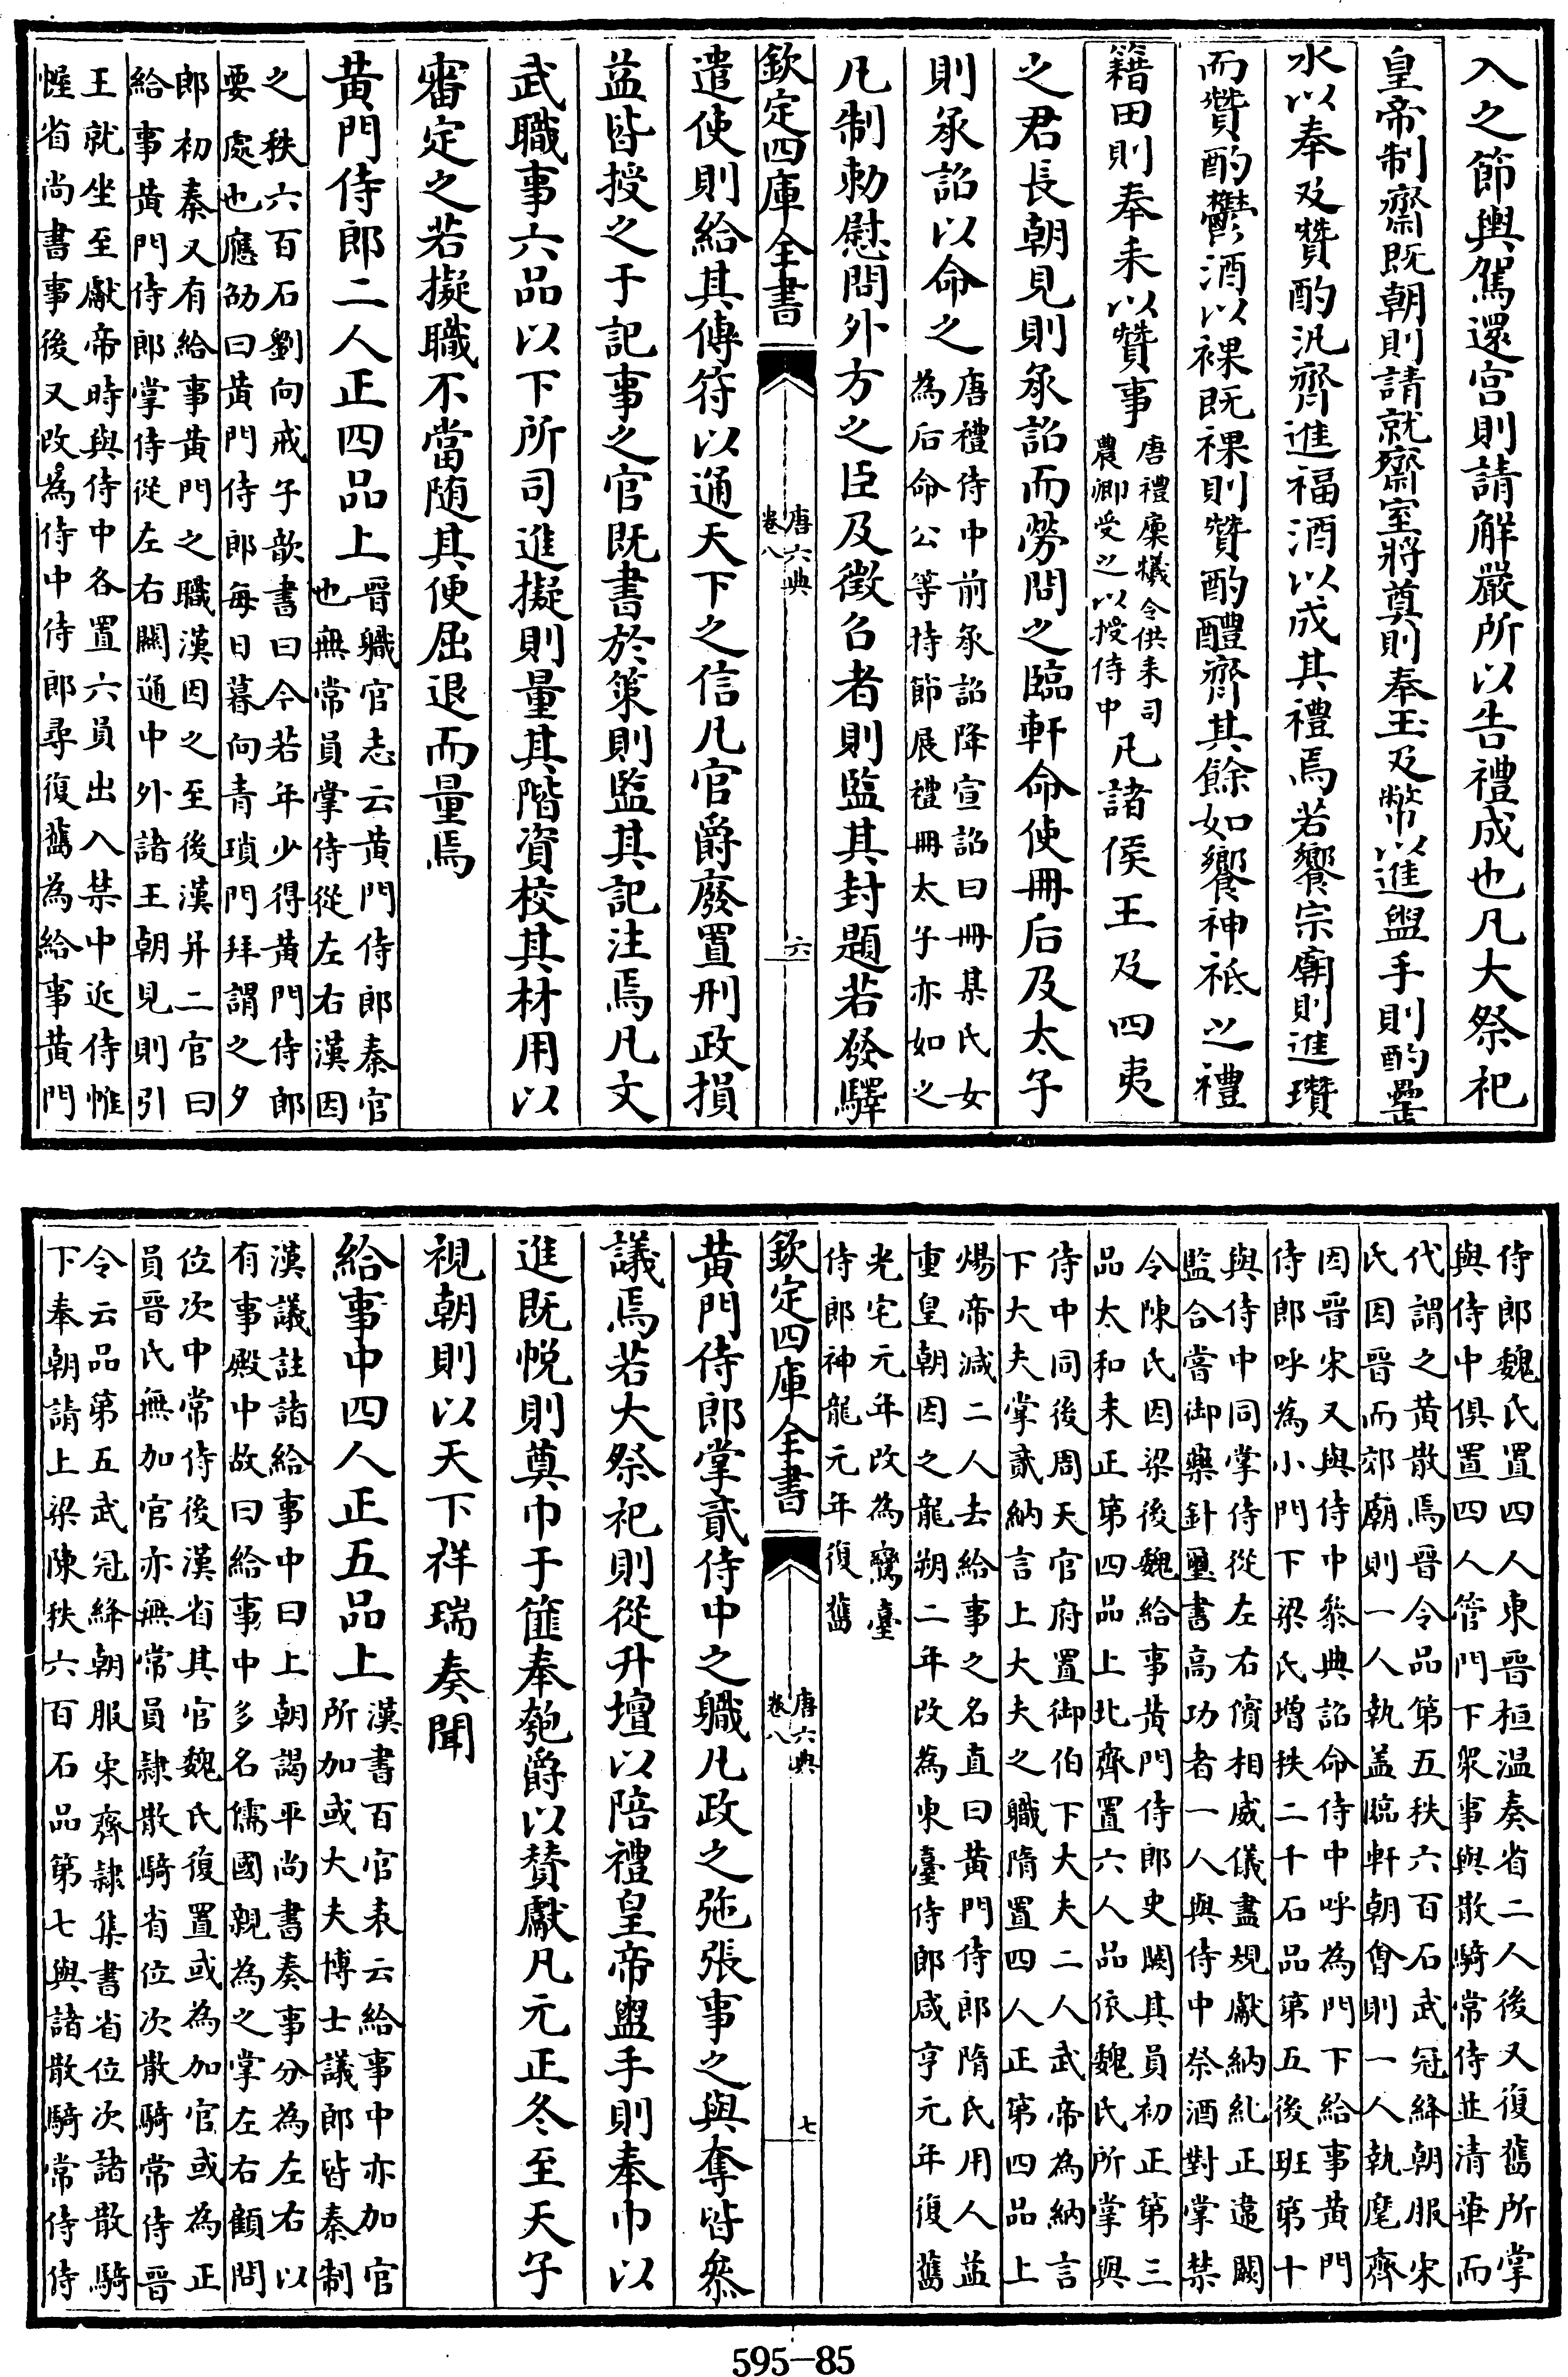 入之節輿駕還宫則請解嚴所以告禮成也凡大祭祀
皇帝制齋既朝則請就齋室將奠則奉玉及幣以進盥手則酌罍
水以奉及贊酌汎齊進福酒以成其禮焉若饗宗廟則進瓚
而贊酌鬱酒以祼既祼則贊酌醴齊其餘如饗神祗之禮
籍田則奉耒以贊事唐禮廩犧令供耒司
農卿受之以授侍中凡諸侯王及四夷
之君長朝見則承詔而勞問之臨軒命使冊后及太子
則承詔以命之唐禮侍中前承詔降宣詔曰冊某氏女
為后命公等持節展禮冊太子亦如之
凡制勅慰問外方之臣及徵召者則監其封題若發驛
欽定四庫全書
唐六典
卷八
六
遣使則給其傳符以通天下之信凡官爵廢置刑政損
益皆授之于記事之官既書於策則監其記注焉凡文
武職事六品以下所司進擬則量其階資校其材用以
審定之若擬職不當随其便屈退而量焉
黄門侍郎二人正四品上晉職官志云黄門侍郎秦官
也無常員掌侍從左右漢因
之秩六百石劉向戒子歆書曰今若年少得黄門侍郎
要處也應劭曰黄門侍郎每日暮向青瑣門拜謂之夕
郎初秦又有給事黄門之職漢因之至後漢并二官曰
給事黄門侍郎掌侍從左右關通中外諸王朝見則引
王就坐至獻帝時與侍中各置六員出入禁中近侍帷
幄省尚書事後又改為侍中侍郎尋復舊為給事黄門
侍郎魏氏置四人東晉桓温奏省二人後又復舊所掌
與侍中俱置四人管門下衆事與散騎常侍並清華而
代謂之黄散焉晉令品第五秩六百石武冠絳朝服宋
氏因晉而郊廟則一人執盖臨軒朝會則一人執麾齊
因晉宋又與侍中叅典詔命侍中呼為門下給事黄門
侍郎呼為小門下梁氏增秩二千石品第五後班第十
與侍中同掌侍從左右儐相威儀盡規獻納糺正違闕
監合嘗御藥針璽書高功者一人與侍中祭酒對掌禁
令陳氏因梁後魏給事黄門侍郎史闕其員初正第三
品太和末正第四品上北齊置六人品依魏氏所掌與
侍中同後周天官府置御伯下大夫二人武帝為納言
下大夫掌貳納言上大夫之職隋置四人正第四品上
煬帝減二人去給事之名直曰黄門侍郎隋氏用人益
重皇朝因之龍朔二年改為東臺侍郎咸亨元年復舊
光宅元年改為鸞臺
侍郎神龍元年復舊
欽定四庫全書
唐六典
卷八
七
黄門侍郎掌貳侍中之職凡政之弛張事之與奪皆叅
議焉若大祭祀則從升壇以陪禮皇帝盥手則奉巾以
進既帨則奠巾于篚奉匏爵以賛獻凡元正冬至天子
視朝則以天下祥瑞奏聞
給事中四人正五品上漢書百官表云給事中亦加官
所加或大夫博士議郎皆秦制
漢議註諸給事中曰上朝謁平尚書奏事分為左右以
有事殿中故曰給事中多名儒國親為之掌左右顧問
位次中常侍後漢省其官魏氏復置或為加官或為正
員晉氏無加官亦無常員隷散騎省位次散騎常侍晉
令云品第五武冠絳朝服宋齊隷集書省位次諸散騎
下奉朝請上梁陳秩六百石品第七與諸散騎常侍侍
595-85